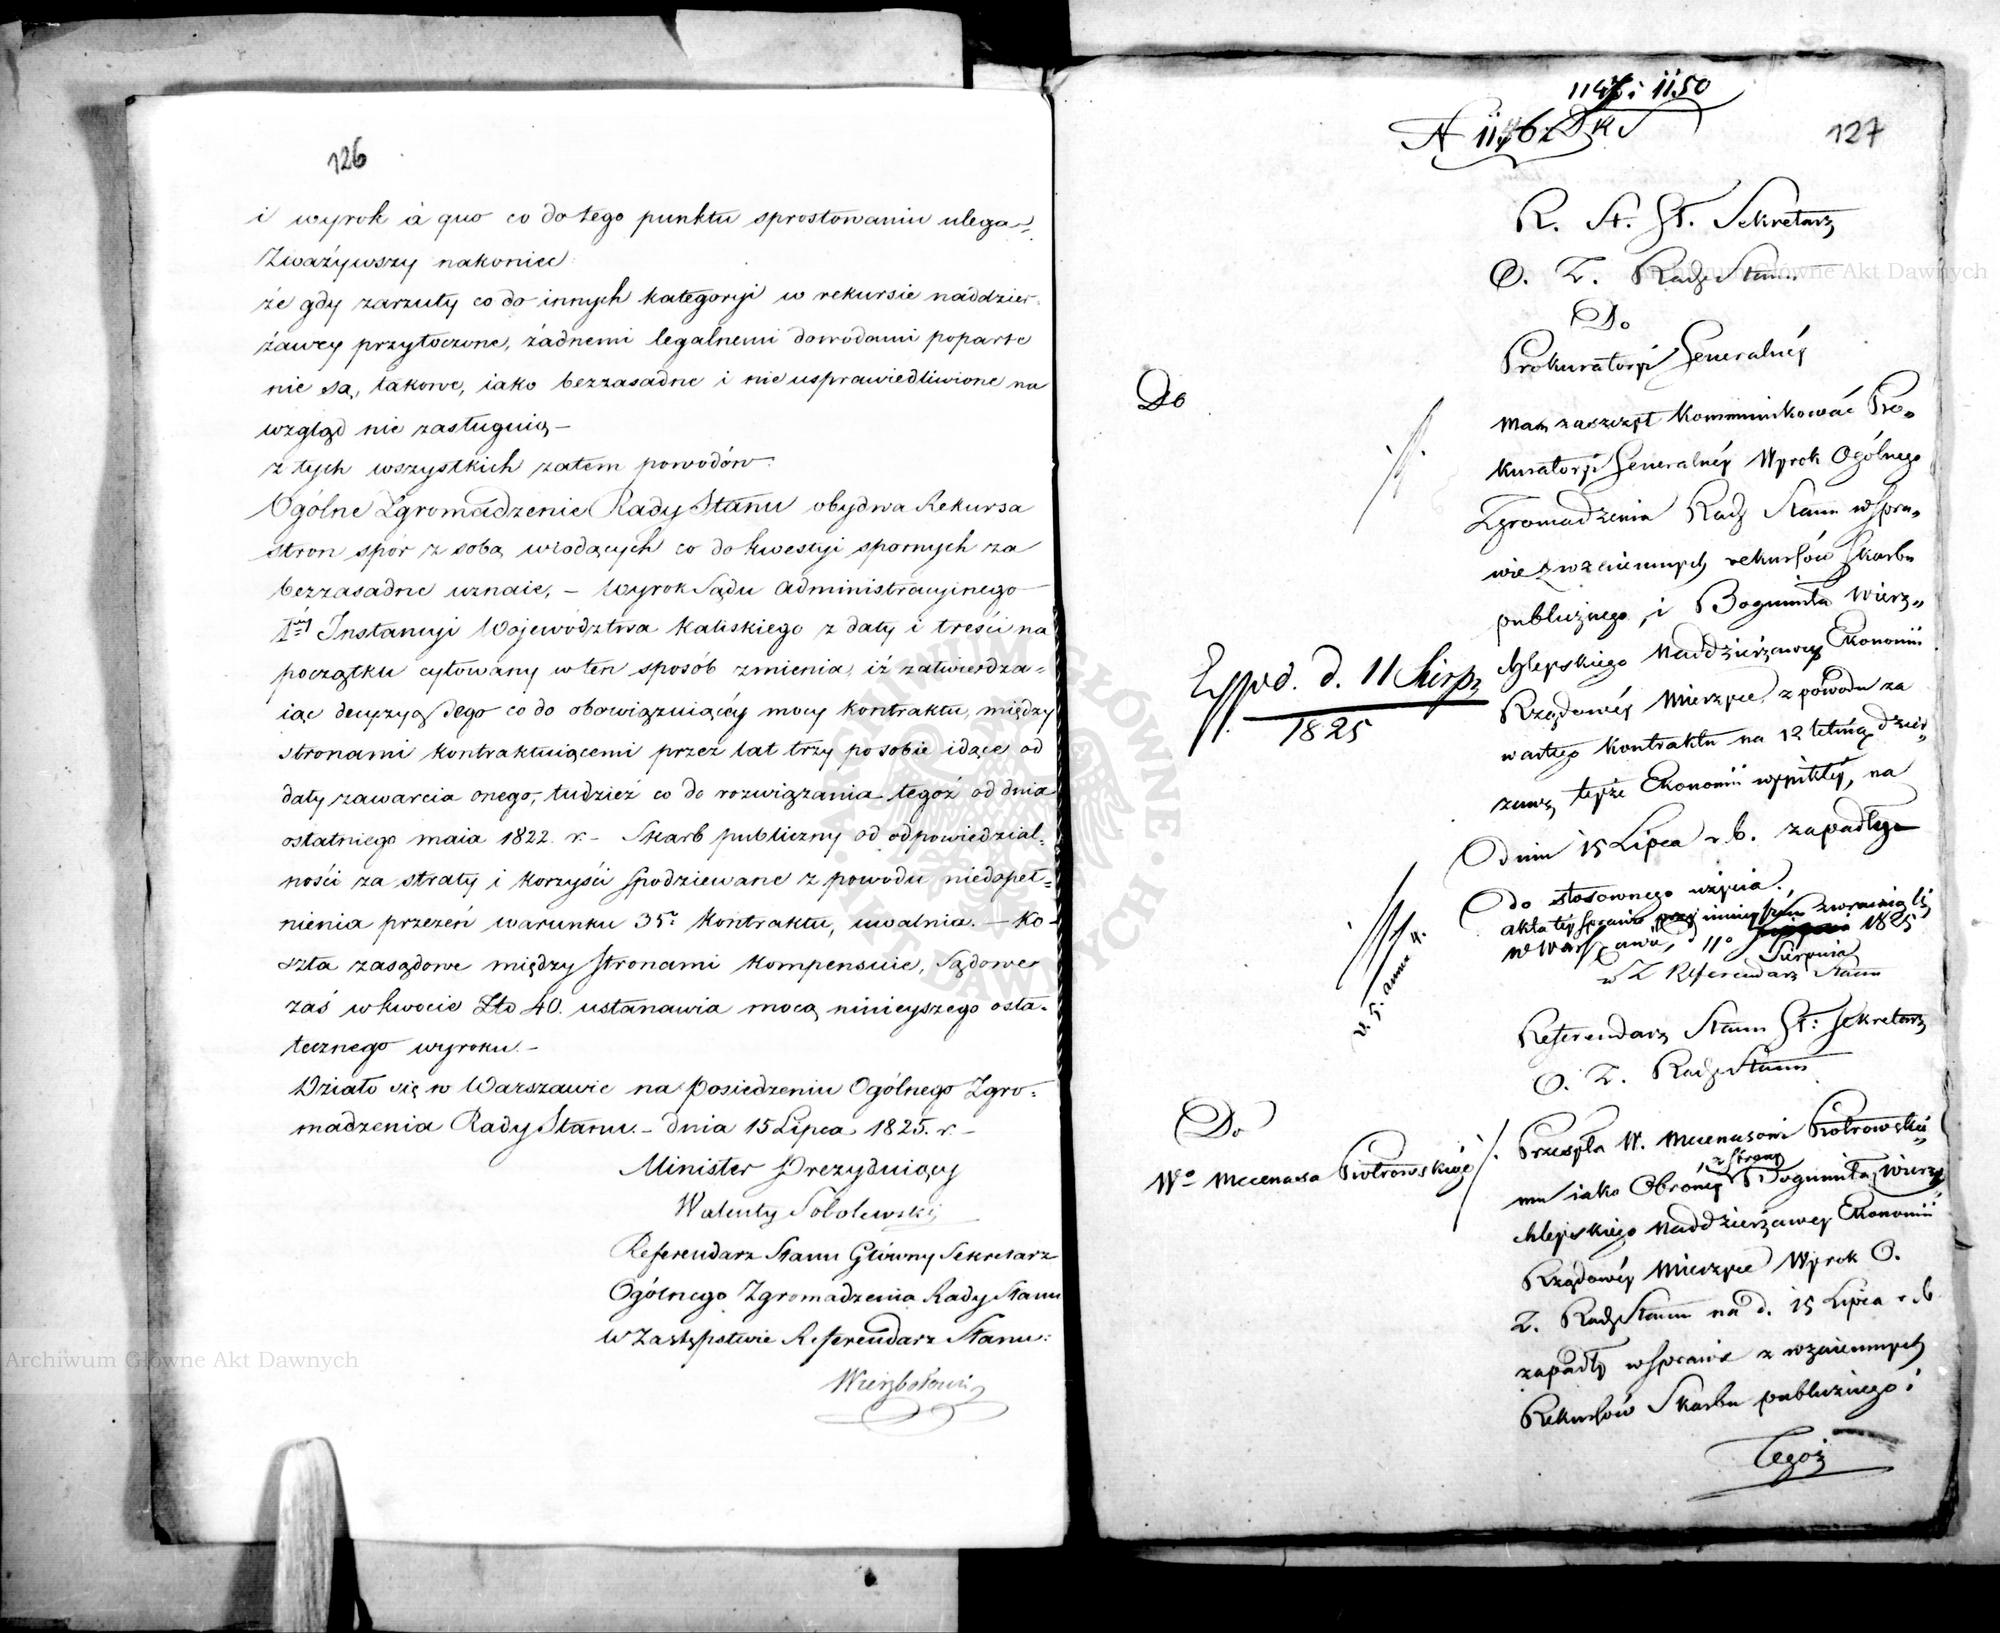 126
i wyrok à quo co do tego punktu sprostowaniu ulega.
Zważywszy nakoniec
że gdy zarzuty co do innych kategoryi w rekursie naddzier-
żawcy przytoczone, żadnemi legalnemi dowodami poparte
nie są, takowe, iako bezzasadne i nieusprawiedliwione na
wzgląd nie zasługuią –
z tych wszystkich zatem powodów.
Ogólne Zgromadzenie Rady Stanu obydwa Rekursa
stron spór z sobą wiodących co do kwestyi spornych za
bezzasadne uznaie, – Wyrok Sądu Administracyinego
Iwszey Instancyi Województwa Kaliskiego z daty i treści na
początku cytowany w ten sposób zmienia, iż zatwierdza=
iąc decyzyą Jego co do obowiązuiącéy mocy kontraktu, między
stronami kontraktuiącemi przez lat trzy po sobie idące od
daty zawarcia onego, tudzież co do rozwiązania tegoż od dnia
ostatniego maia 1822 r. – Skarb publiczny od odpowiedzial-
ności za straty i korzyści spodziewane z powodu niedopeł-
nienia przezeń warunku 35° kontraktu, uwalnia. – Ko-
szta zasądowe między stronami kompensuie, Sądowe
zaś w kwocie Złp 40. ustanawia mocą ninieyszego osta-
tecznego wyroku. –
Działo się w Warszawie na Posiedzeniu Ogólnego Zgro-
madzenia Rady Stanu. – dnia 15 Lipca 1825. r. –
Minister Prezyduiący
Walenty Sobolewski
Referendarz Stanu Główny Sekretarz
Ogólnego Zgromadzenia Rady Stanu
w Zastępstwie Referendarz Stanu:
Wierzbołowicz
1147 i 1150
N 1146
127
R. St. Gł. Sekretarz
O. Z. Rady Stanu
Do
Prokuratoryi Generalnéy
Do
Mam zaszczyt kommunikować Pro-
kuratoryi Generalnéy Wyrok Ogólnego
Zgromadzenia Rady Stanu w spra-
wie z wzaiemnych rekursów Skarbu
publicznego, i Bogumiła Wierz-
chleyskiego Naddzierżawcy Ekonomii
Rządowéy Mierzyce, z powodu za
wartego kontraktu na 12 letnią dzier-
żawę teyże Ekonomii wynikłéy, na
dniu 15 Lipca r. b. zapadłego
Expd. d. 11 Sierp
1825
Do stosownego użycia.
akta téy sprawy przy ninieyszém zwracaią się
w Warszawie, d 11° Sierpnia 1825
w Z Referendarz Stanu
Referendarz Stanu Gł: Sekretarz
O. Z. Rady Stanu
Do
Wo Mecenasa Piotrowskiego
Przesyła W. Mecenasowi Piotrowskie-
mu iako Obrońcy z Strony Bogumiła Wierz
chleyskiego Naddzierżawcy Ekonomii
Rządowéy Mierzyce Wyrok O.
Z. Rady Stanu na d. 15 Lipca r. b
zapadły w sprawie z wzaiemnych
Rekursów Skarbu publicznego i
Tegoż
Archiwum Główne Akt Dawnych
Archiwum Główne Akt Dawnych
ARCHIWUM GŁÓWNE AKT DAWNYCH